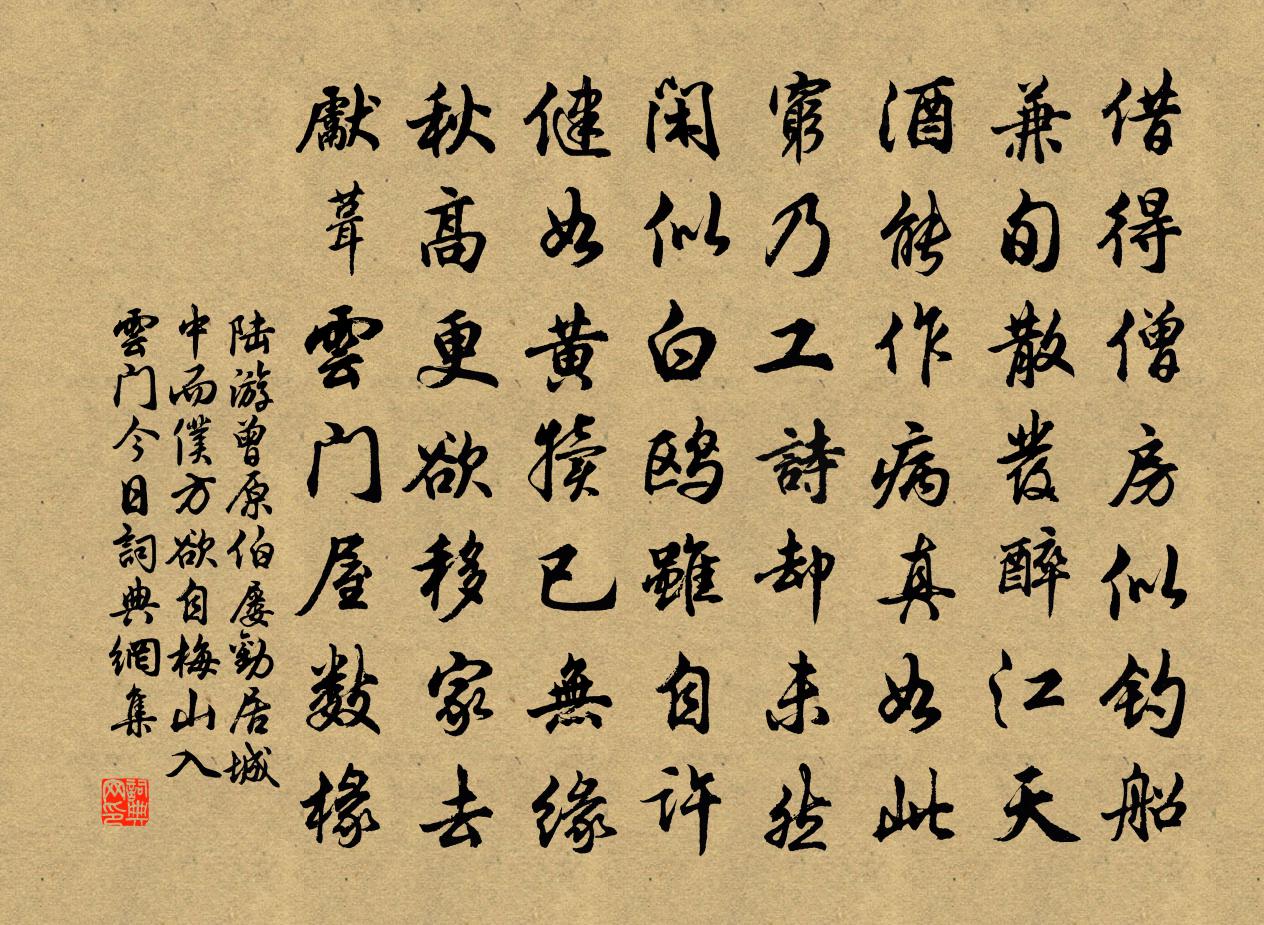 借得僧房似钓船
兼旬散發醉江天
酒能作病真如此
窮乃工詩却未然
闲似白鸥雖自许
健如黄犢已無缘
秋高更欲移家去
獻葺雲门屋數椽
陆游曾原伯屡勸居城
中而僕方欲自梅山入
雲门今日詞典網集
詞典网印